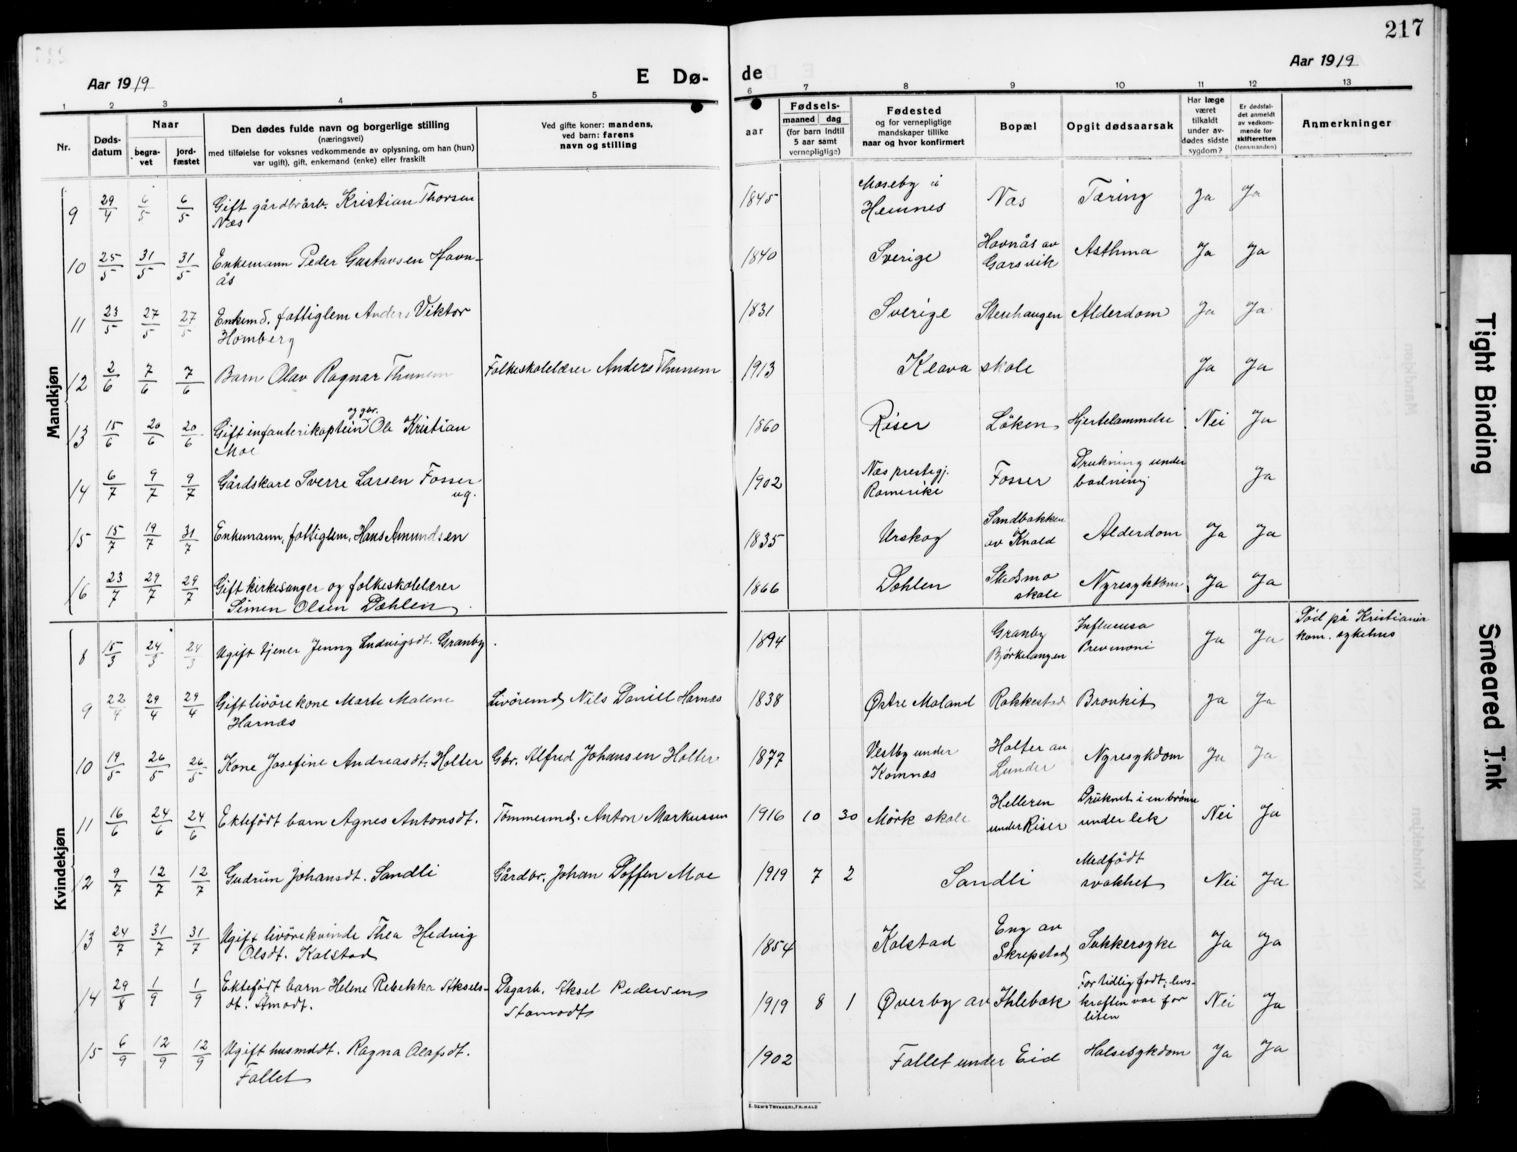 217
Aar 1919
E Dø-
de
Aar 1919
1 2 3 4 5 6 7 8 9 10 11 12 13
Nr.
Døds-
datum
Naar
begra-
vet
jord-
fæstet
Den dødes fulde navn og borgerlige stilling
(næringsvei)
med tilføielse for voksnes vedkommende av oplysning, om han (hun)
var ugift, gift, enkemand (enke) eller fraskilt
Ved gifte koner: mandens,
ved barn: farens
navn og stilling
aar
Fødsels-
maaned dag
(for barn indtil
5 aar samt
vernepligtige)
Fødested
og for vernepligtige
mandskaper tillike
naar og hvor konfirmert
Bopæl
Opgit dødsaarsak
Har læge
været
tilkaldt
under av-
dødes sidste
sygdom?
Er dødsfal-
det anmeldt
av vedkom-
mende for
skifteretten
(lensmanden)
Anmerkninger
Mandkjøn
9 29/4 6/5 6/5 Gift gårdbrarb. Kristian Thorsen
Næs
1845 Moseby i
Hemnes Næs Tæring Ja Ja
10 25/5 31/5 31/5 Enkemann Peder Gustavsen Havn-
ås
1840 Sverige Havnås av
Garsvik Asthma Ja Ja
11 23/5 27/5 27/5 Enkem d. fattiglem Anders Viktor
Homberg
1831 Sverige Stenhaugen Alderdom Ja Ja
12 2/6 7/6 7/6 Barn Olav Ragnar Thunem Folkeskolelærer Anders Thunem 1913 Kleava skole Ja Ja
13 15/6 20/6 20/6 Gift infanterikaptein og gbr. Ole Kristian
Moe
1860 Riser Løken Hjertelammelse Nei Ja
14 6/7 9/7 9/7 Gårdskare Sverre Larsen Fosser
ug.
1902 Næs prestegj.
Romerike Fosser Drukning under
badning Ja
15 15/7 19/7 31/7 Enkemann, fattiglem, Hans Amundsen 1835 Urskog Sandbakken
av Knald Alderdom Ja Ja
16 23/7 29/7 29/7 Gift kirkesanger og folkeskolelærer
Simen Olsen Dæhlen
1866 Dæhlen Skedsmo
skole Nyresykdom Ja Ja
Kvindekjøn
8 15/3 24/3 24/3 Ugift tjener Jenny Ludvigsdt. Granby. 1894 Granby
Bjørkelangen Influensa
Prevmoni Ja Ja Død på Kristiania
kom. sykehus
9 22/4 29/4 29/4 Gift livørekone Marte Malene
Harnæs Livøremd, Nils Daniel Harnæs 1838 Østre Moland Rakkestad Bronkit Ja Ja
10 19/5 26/5 26/5 Kone Josefine Andreasdt. Holter Gbr. Alfred Johansen Holter 1877 Vestby under
Komnæs Holter av
Lunder Nyresykdom Ja Ja
11 16/6 24/6 24/6 Ektefødt barn Agnes Antonsdt. Tømmermd. Anton Markussen 1916 10 30 Mørk skole Helleren
under Riser Druknet i en brønn
under lek Nei Ja
12 9/7 12/7 12/7 Gudrun Johansdt. Sandli Gårdbr. Johan Doffen Moe 1919 7 2 Sandli Medfødt
svakhet Nei Ja
13 24/7 31/7 31/7 Ugift livørekvinde Thea Hedvig
Olsdt. Kolstad 1854 Kolstad Eng av
Skrepstad Sukkersyke Ja Ja
14 29/8 1/9 1/9 Ektefødt barn Helene Rebekka Aksels-
dt. Åmodt. Dagarb. Aksel Pedersen
Stamodt 1919 8 1 Øverby av Ihlebæk For tidlig født; livs-
kraften var for
liten Nei Ja
15 6/9 12/9 12/9 Ugift husmdt. Ragna Olafsdt.
Fallet 1902 Fallet under Eid Halsesykdom Ja Ja
Tight Binding
Smeared Ink